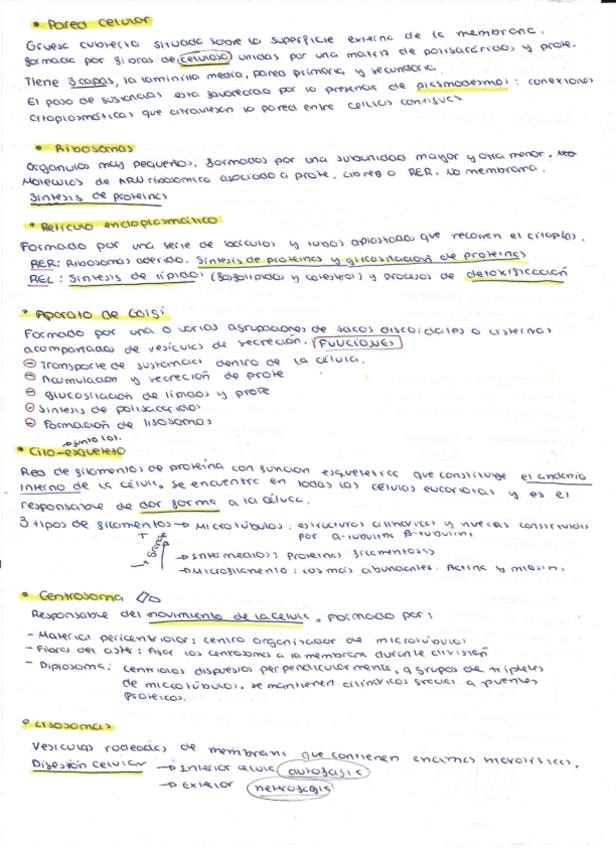 • Pared celular
Gruesa cubierta situada sobre la superficie externa de la membrana.
formada por fibras de celulosa unidas por una matriz de polisacáridos y prote.
Tiene 3 capas, la laminilla media, pared primaria y secundaria.
El paso de sustancias esta favorecido por la presencia de plasmodesmos: conexiones
citoplasmáticas que atraviesan la pared entre células contiguas
• Ribosomas
Organulos muy pequeños, formados por una subunidad mayor y otra menor.
Moleculas de ARN ribosomico asociado a prote. Libres o RER. No membrana.
Síntesis de proteínas
• Retículo endoplasmático
Formado por una serie de sáculos y tubos aplastados que recorren el citoplas.
RER: Ribosomas aderido. Síntesis de proteinas y glicosilación de proteinas
REL: Síntesis de lípidos (fosfolípidos y colesterol) y procesos de detoxificación
• Aparato de Golgi
Formado por una o varias agrupaciones de sacos discoidales o cisternas
acompañadas de vesículas de secreción. FUNCIONES
⊖ Transporte de sustancias dentro de la célula.
⊖ Acumulación y secreción de prote
⊖ Glucosilación de lípidos y prote
⊖ Síntesis de polisacáridos
⊖ Formación de lisosomas
• Cito-esqueleto
Red de filamentos de proteína con función esquelética que constituye el andamio
interno de la célula. Se encuentra en todas las células eucariotas y es el
responsable de dar forma a la célula.
3 tipos de filamentos → Microtúbulos: estructuras cilíndricas y huecas constituidas
por α-tubulina β-tubulina
+ Grande -
→ Intermedios: Proteinas filamentosas
→ Microfilamento: Los más abundantes. Actina y miosina.
• Centrosoma
Responsable del movimiento de la célula. Formado por:
- Material pericentriolar: centro organizador de microtúbulos
- Fibras del aster: Fijar los centrosoma a la membrana durante división
- Diplosoma: centriolos dispuestos perpendicularmente, 9 grupos de tripletes
de microtúbulos. Se mantienen cilíndricos gracias a puentes
proteicos.
• Lisosomas
Vesículas rodeadas de membrana que contienen enzimas hidrolíticas.
Digestión celular → Interior célula autofagia
→ Exterior heterofagia